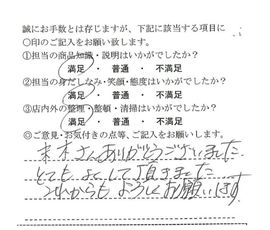 誠にお手数とは存じますが、下記に該当する項目に
〇印のご記入をお願い致します。
①担当の商品知識・説明はいかがでしたか?
満足 ・ 普通 ・ 不満足
②担当の身だしなみ・笑顔・態度はいかがでしたか?
満足 ・ 普通 ・ 不満足
③店内外の整理・整頓・清掃はいかがでしたか?
満足 ・ 普通 ・ 不満足
◎ご意見・お気付きの点等、ご記入をお願いします。
さんありがとうございました
とてもよくして頂きました
これからもよろしくお願いします